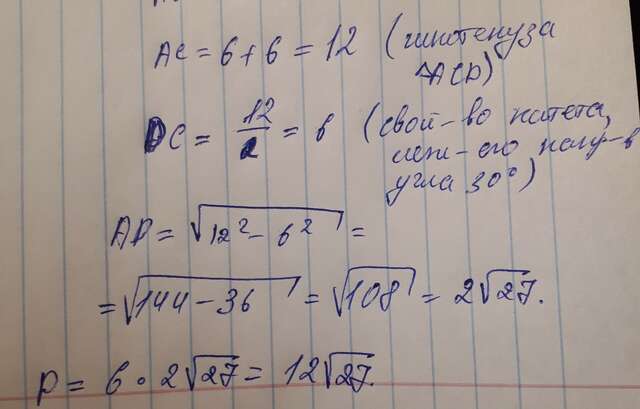 AC = 6 + 6 = 12 (гипотенуза
△ACD)
DC = 12/2 = 6 (свой-во катета,
леж-его напр-в
угла 30°)
AD = √(12² - 6²) =
= √(144 - 36) = √108 = 2√27.
P = 6 · 2√27 = 12√27.